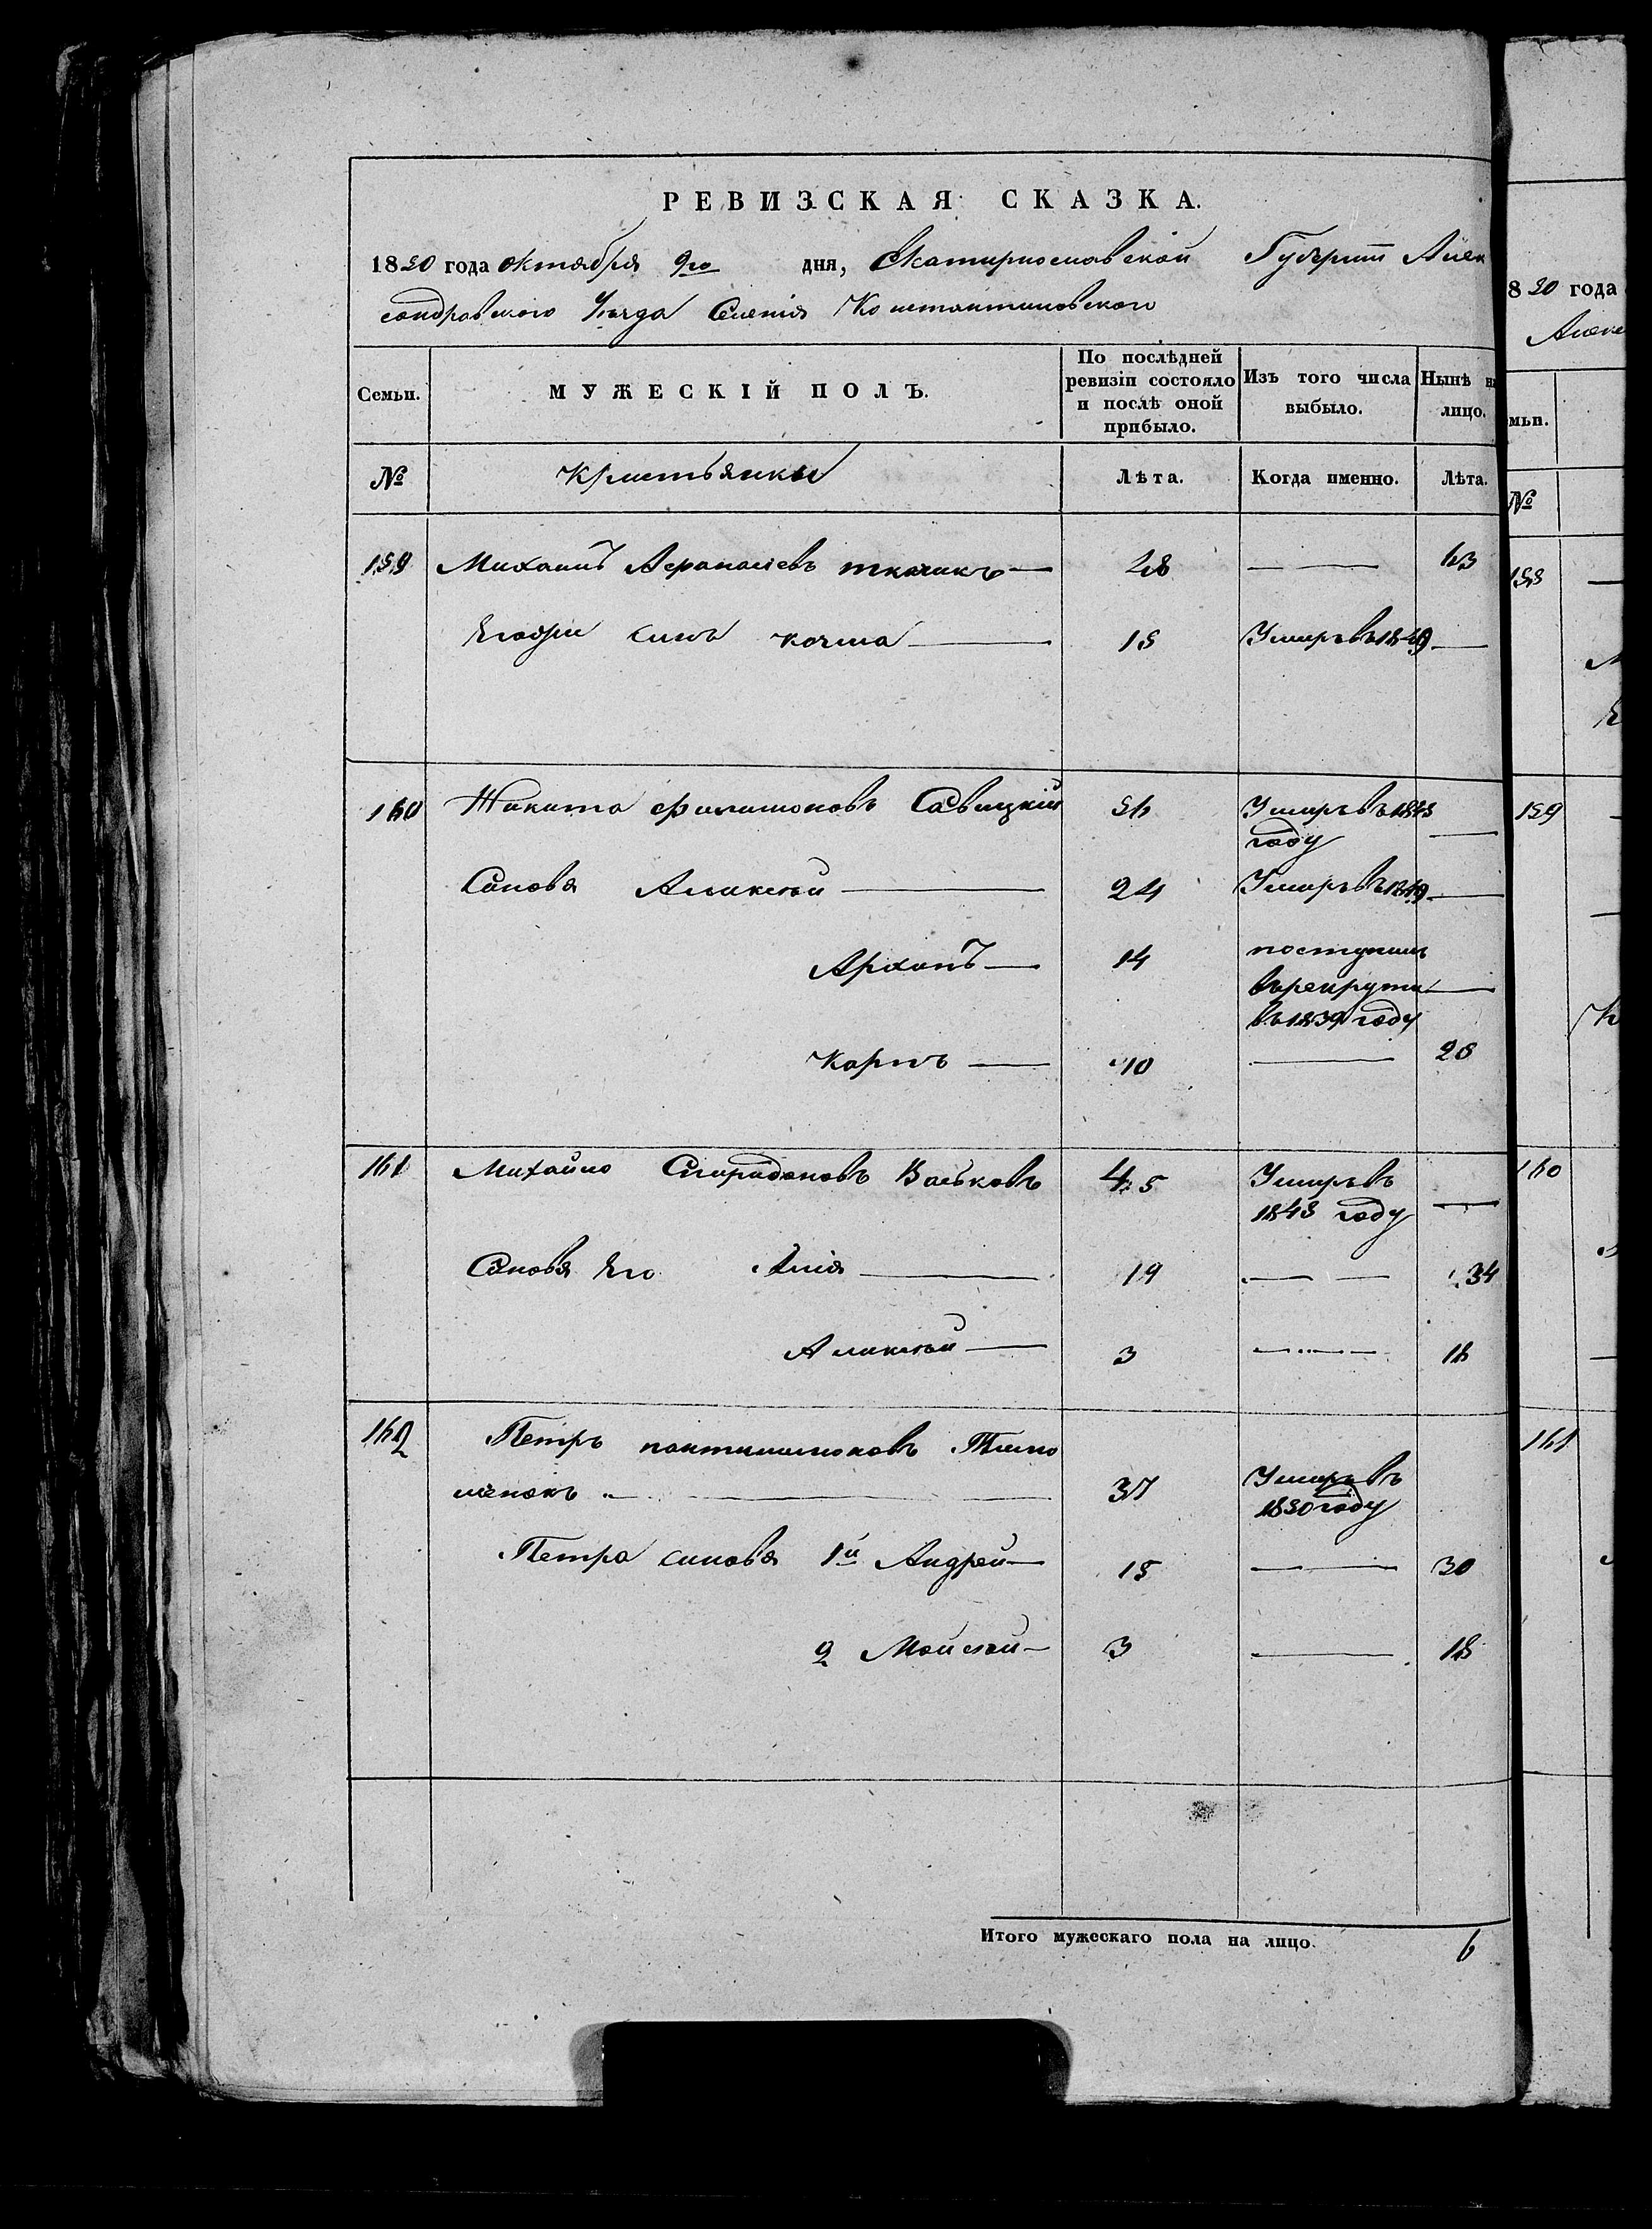 РЕВИЗСКАЯ СКАЗКА.
1850 года октября 9го дня, Екатирнославской Губернiи Алек
сондровского Уѣзда Селенiя Константиновского
Семьи. МУЖЕСКІЙ ПОЛЪ. По послѣдней ревизіи состояло и послѣ оной прибыло. Изъ того числа выбыло. Нынѣ на лицо.
№ Кристьянъи Лѣта. Когда именно. Лѣта.
159 Михаилъ Афанасiевъ ткачикъ — 48 — 63
синъ — 15 Умиръ въ 1849 —
160 Никита Филимоновъ Савицкiй 56 Умиръ въ 1848 году —
Синовя Аликсѣй — 24 Умиръ въ 1849 —
Архипъ — 14 поступилъ въ рекрути въ 1839 году —
Карпъ — 10 — 25
161 Михайло Спиридоновъ Васьковъ 45 Умиръ въ 1848 году —
Синовя Его Илiя — 19 — 34
Аликсѣй — 3 — 18
162 Петръ пантилимоновъ Тимо
шенокъ — 37 Умиръ въ 1850 году
Петра синовя 1й Андрей — 15 — 30
2 Мойсѣй — 3 — 18
Итого мужескаго пола на лицо. 6
850 года
Алекс
мьи.
№
158
159
160
161